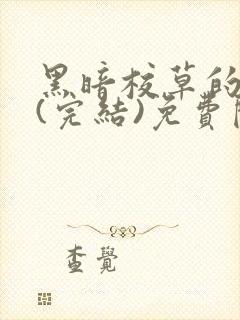 黑暗校草的
(完結)免費
查覺